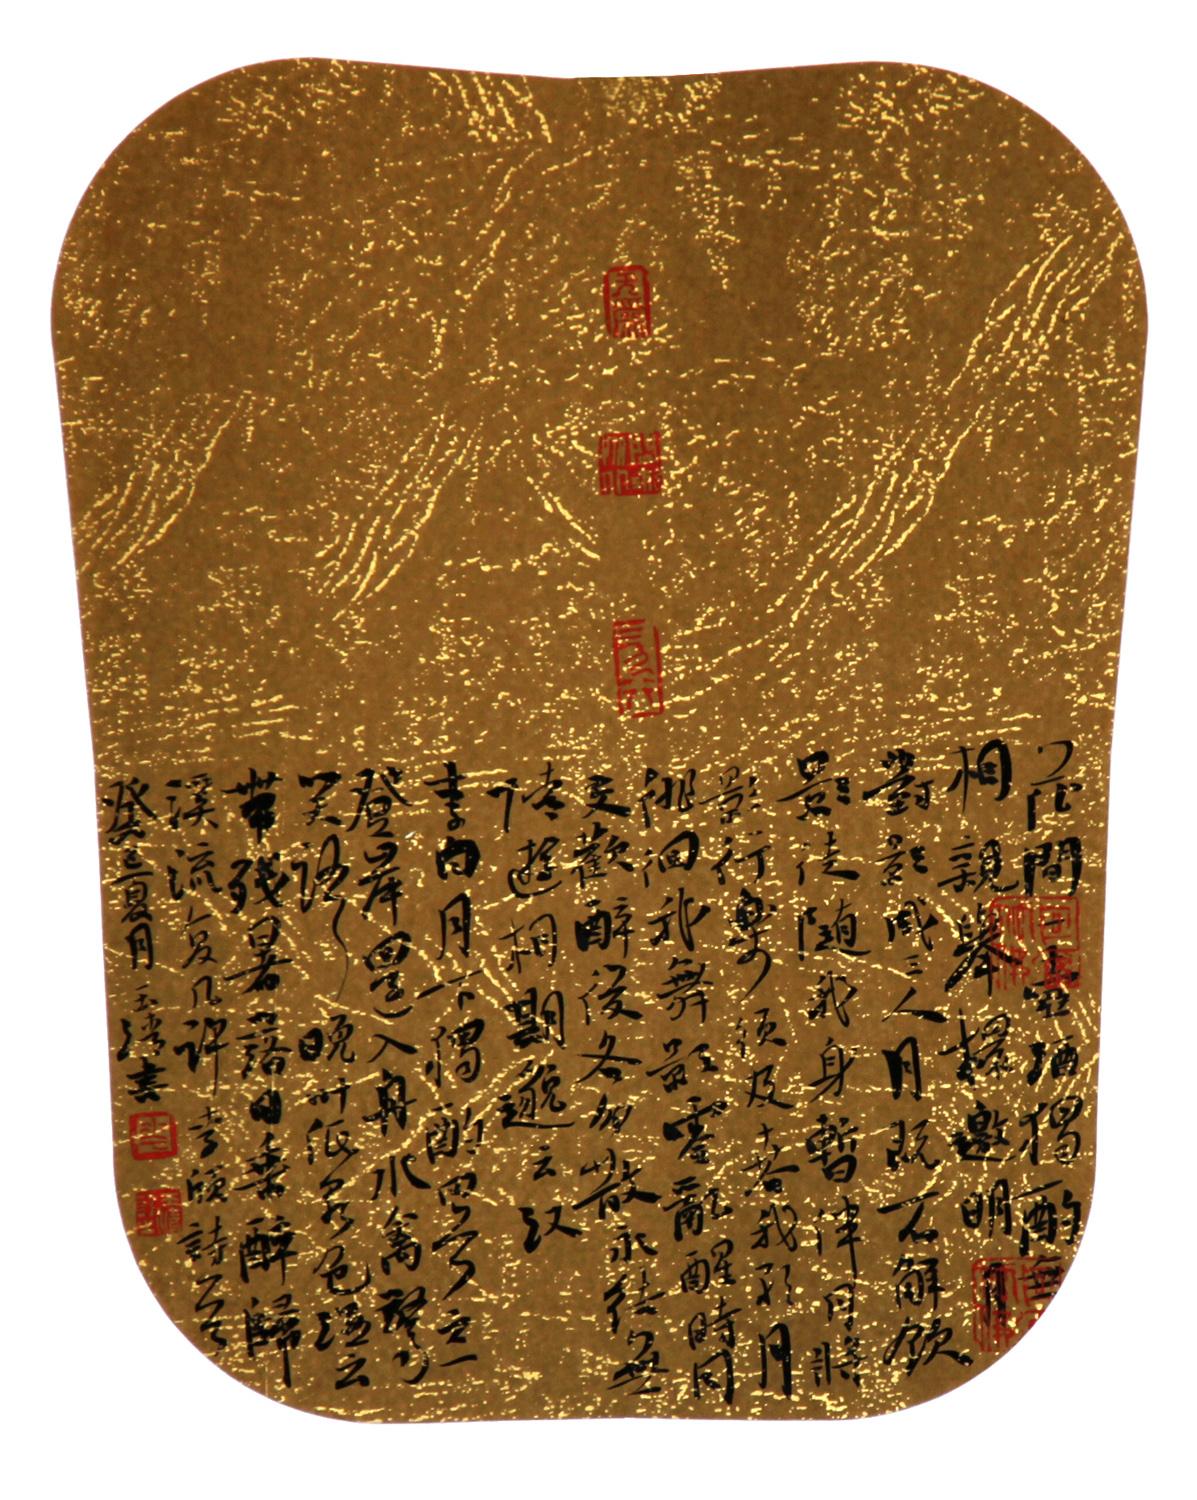 花間一壺酒獨酌無
相親舉杯邀明月
對影成三人月既不解飲
影徒隨我身暫伴月將
影行樂須及春我歌月
徘徊我舞影零亂醒時同
交歡醉後各分散永結無
情遊相期邈云汉
李白月下獨酌四首之一
登岸還入舟水禽驚
笑語晚叶低眾色濕云
帶殘暑落日乘醉歸
溪流復几許李頎詩一首
癸巳夏月書